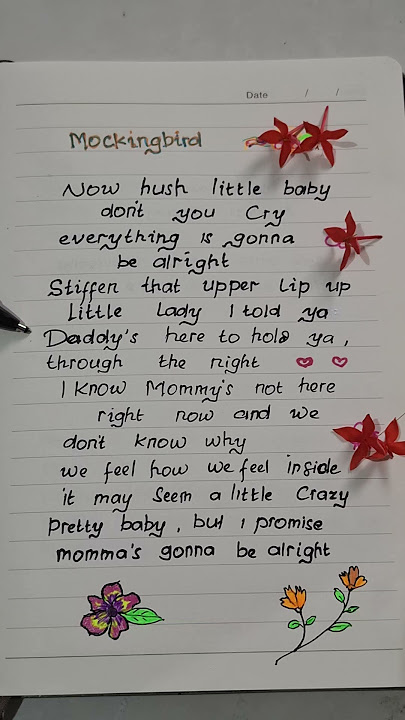 Date / /
Mockingbird
Now hush little baby
don't you Cry
everything is gonna
be alright
Stiffen that upper Lip up
Little Lady I told ya
Daddy's here to hold ya,
through the night
I know Mommy's not here
right now and we
don't know why
we feel how we feel inside
it may Seem a little Crazy
Pretty baby, but I promise
momma's gonna be alright